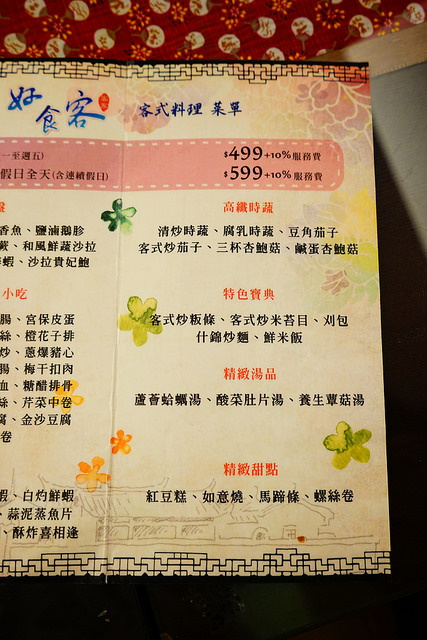 好食客
客式料理 菜單
一至週五) $499+10%服務費
假日全天(含連續假日) $599+10%服務費
盤
香魚、鹽滷鵝胗
蕨、和風鮮蔬沙拉
蝦、沙拉貴妃鮑
高纖時蔬
清炒時蔬、腐乳時蔬、豆角茄子
客式炒茄子、三杯杏鮑菇、鹹蛋杏鮑菇
小吃
腸、宮保皮蛋
絲、橙花子排
炒、蔥爆豬心
腸、梅干扣肉
血、糖醋排骨
絲、芹菜中卷
腐、金沙豆腐
卷
特色寶典
客式炒粄條、客式炒米苔目、刈包
什錦炒麵、鮮米飯
精緻湯品
蘆薈蛤蠣湯、酸菜肚片湯、養生蕈菇湯
蝦、白灼鮮蝦
、蒜泥蒸魚片
、酥炸喜相逢
精緻甜點
紅豆糕、如意燒、馬蹄條、螺絲卷